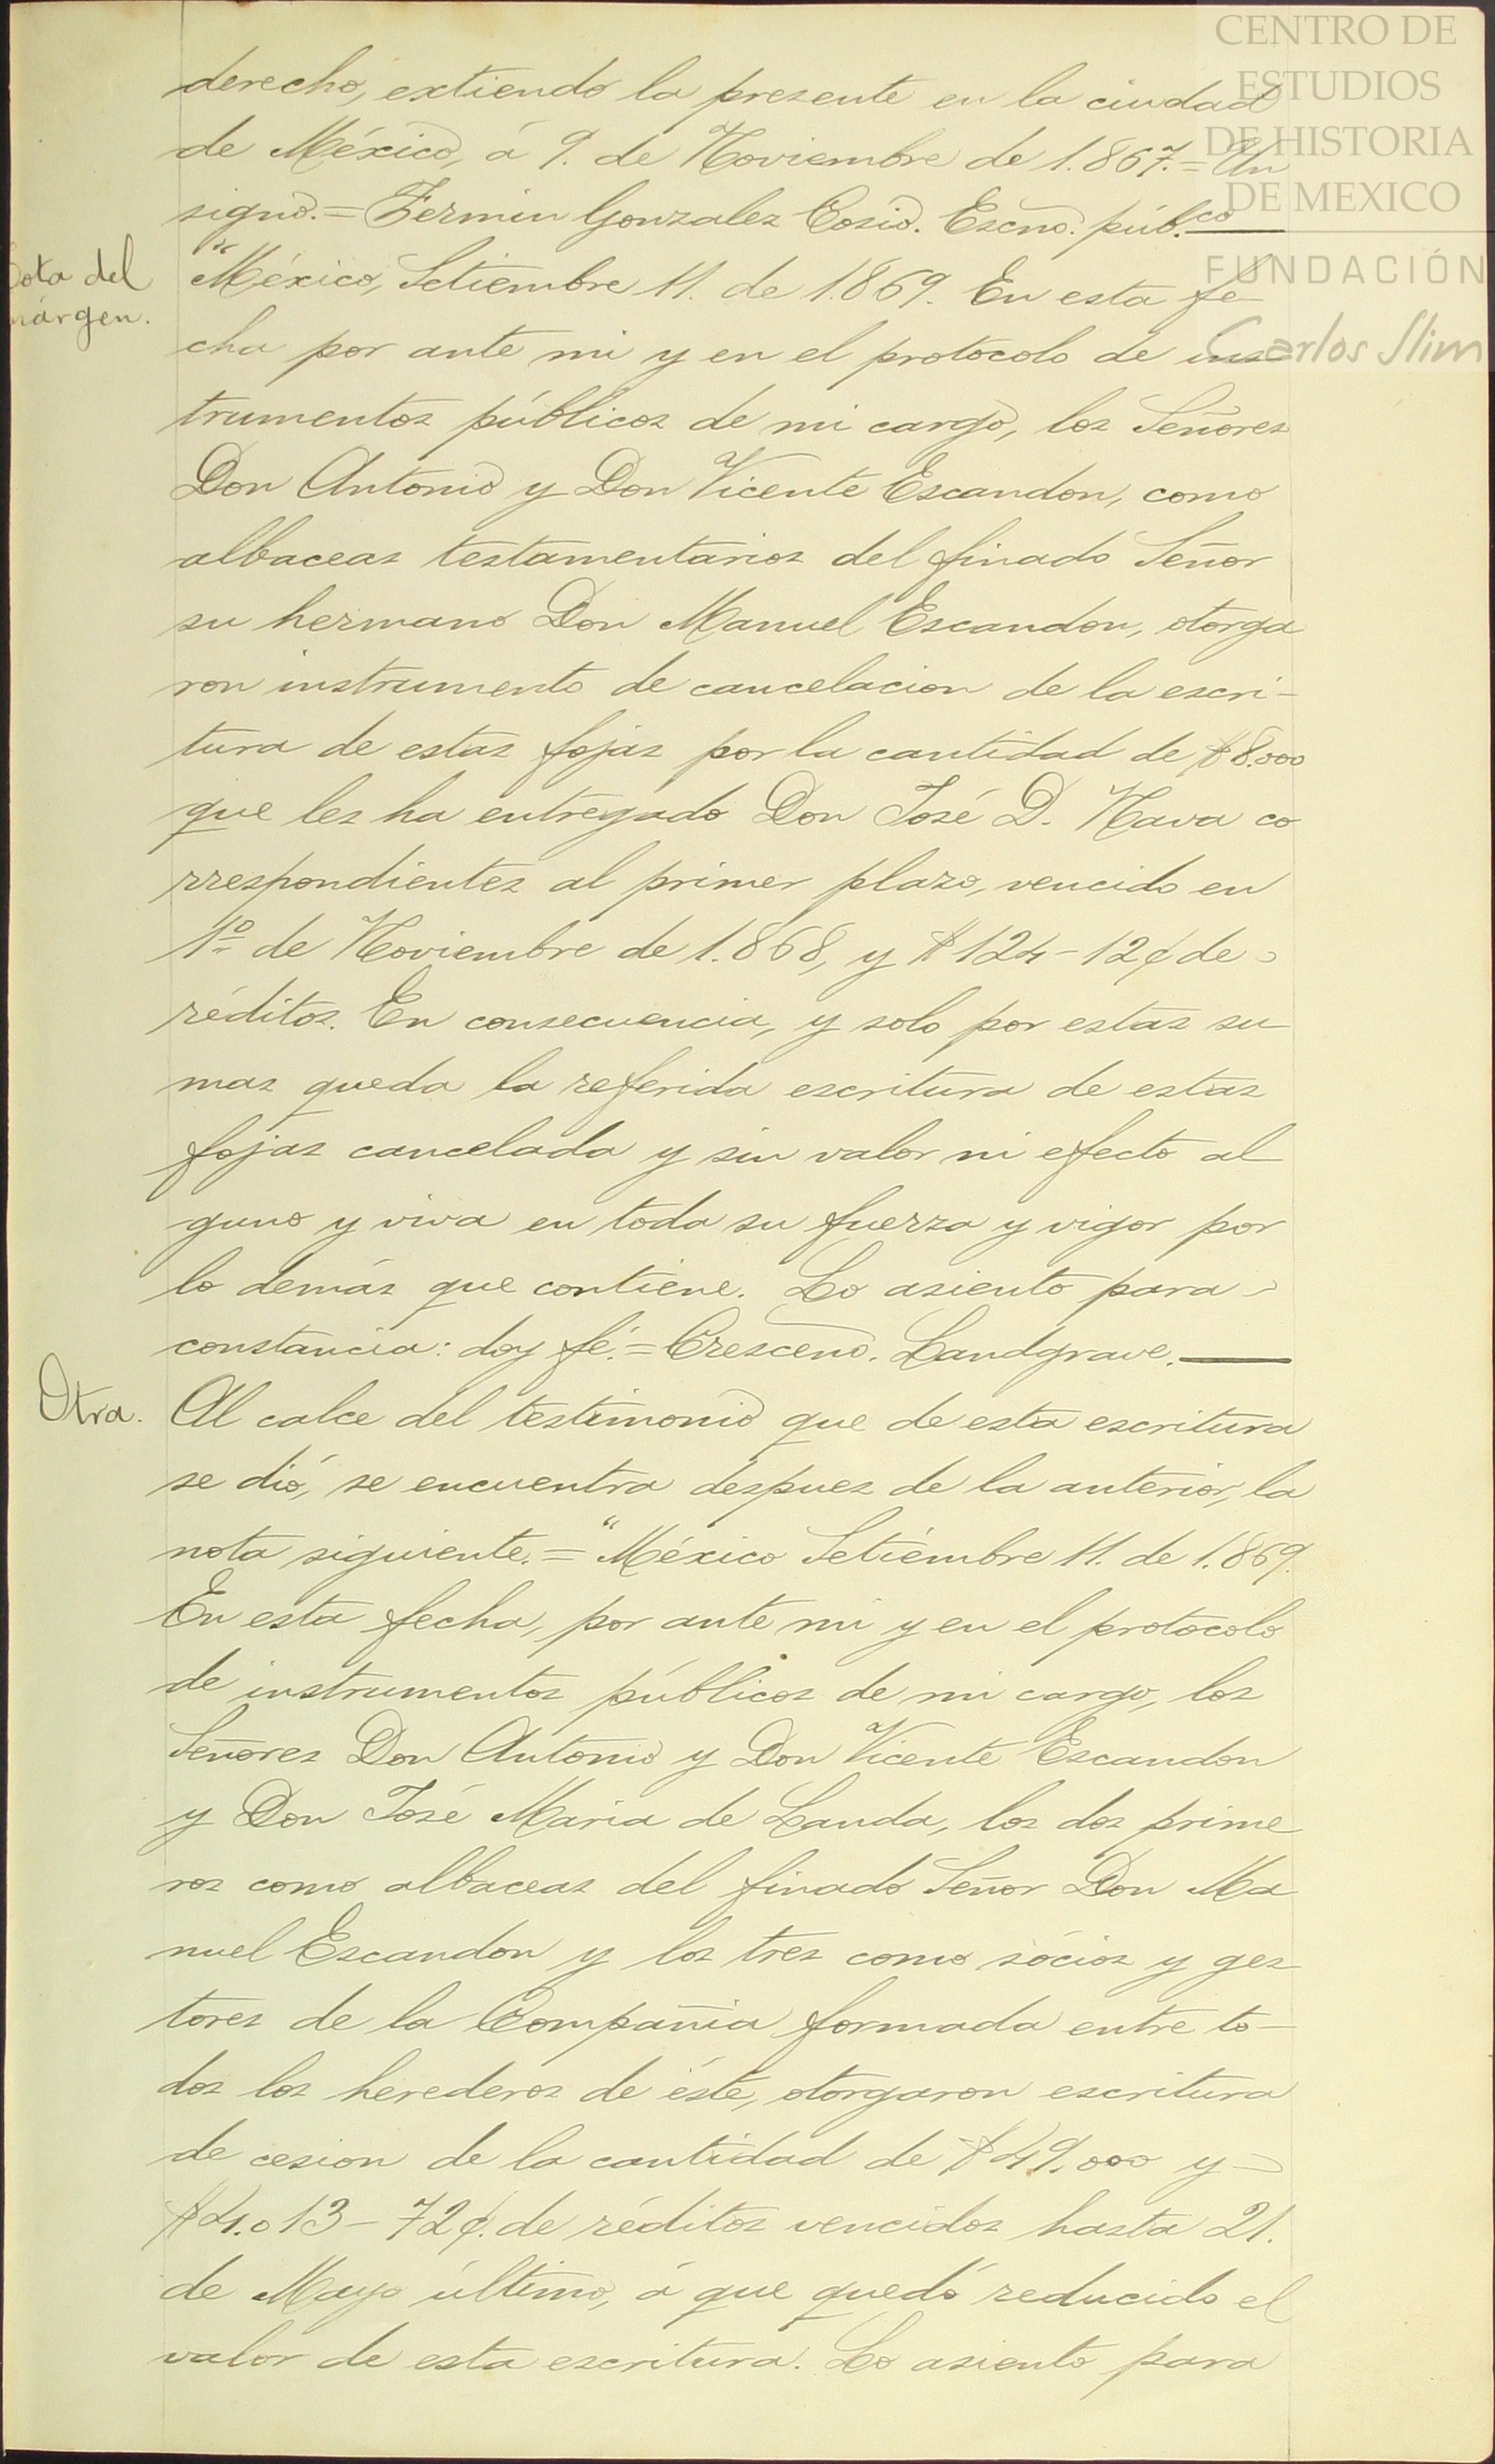 CENTRO DE
ESTUDIOS
DE HISTORIA
DE MEXICO
FUNDACIÓN
Carlos Slim
derecho, extiendo la presente en la ciudad
de México, á 9. de Noviembre de 1.867.= Un
signo.= Fermin Gonzalez Cosio. Escno. púb.co
Nota del
márgen.
"México, Setiembre 11. de 1.869. En esta fe
cha por ante mi y en el protocolo de ins-
trumentos públicos de mi cargo, los Señores
Don Antonio y Don Vicente Escandon, como
albaceas testamentarios del finado Señor
su hermano Don Manuel Escandon, otorga
ron instrumento de cancelacion de la escri-
tura de estas fojas por la cantidad de $8.000
que les ha entregado Don José D. Nava co
rrespondientes al primer plazo, vencido en
1º de Noviembre de 1.868, y $124-12¢ de
réditos. En consecuencia, y solo por estas su
mas queda la referida escritura de estas
fojas cancelada y sin valor ni efecto al
guno y viva en toda su fuerza y vigor por
lo demás que contiene. Lo asiento para
constancia: doy fé.= Crescenо. Landgrave.
Otra.
Al calce del testimonio que de esta escritura
se dió, se encuentra despues de la anterior, la
nota siguiente.= "México Setiembre 11. de 1.869.
En esta fecha, por ante mi y en el protocolo
de instrumentos públicos de mi cargo, los
Señores Don Antonio y Don Vicente Escandon
y Don José Maria de Landa, los dos prime
ros como albaceas del finado Señor Don Ma
nuel Escandon y los tres como sócios y ges
tores de la Compañia formada entre to-
dos los herederos de éste, otorgaron escritura
de cesion de la cantidad de $49.000 y
$4.013-72¢. de réditos vencidos hasta 21.
de Mayo último, á que quedó reducido el
valor de esta escritura. Lo asiento para